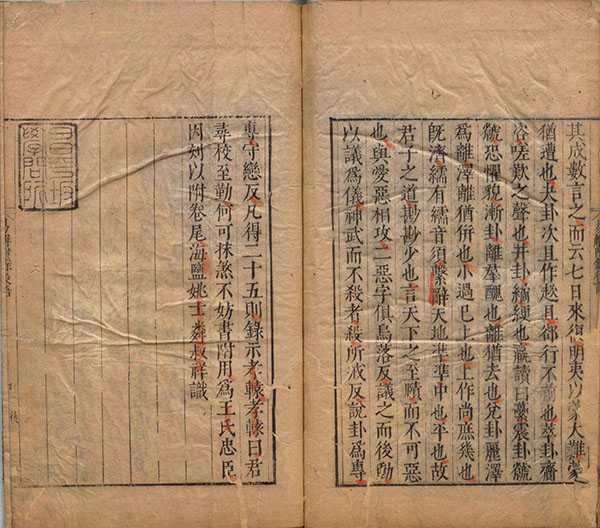 其成數言之而云七日來復明夷以蒙大難蒙
猶遭也夬卦次且作趑且郤行不前也萃卦齎
咨嗟歎之聲也井卦繘綆也羸讀曰虆震卦虩
虩恐懼貌漸卦離羣醜也離猶去也兌卦麗澤
爲離澤離猶併也小過已上也上作尚庶幾也
旣濟繻有繻音須繫辭天地準準中也平也故
君子之道尠尠少也言天下之至賾而不可惡
也與愛惡相攻二惡字俱烏落反議之而後動
以議爲儀神武而不殺者殺所戒反說卦爲專
專守戀反凡得二十五則錄示孝轅孝轅曰君
尋校至勤何可抹煞不妨書附用爲王氏忠臣
因刻以附卷尾海鹽姚士粦叔祥識